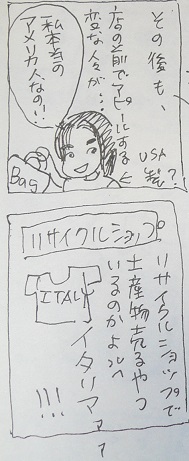 その後も、
店の前でアピールする
変な人々が…
USA
製?!
私本当の
アメリカ人なの!!
Bag
リサイクルショップ
リサイクルショップで
土産物売るやつ
いるのかよ
ITALY
イタリア
!!!